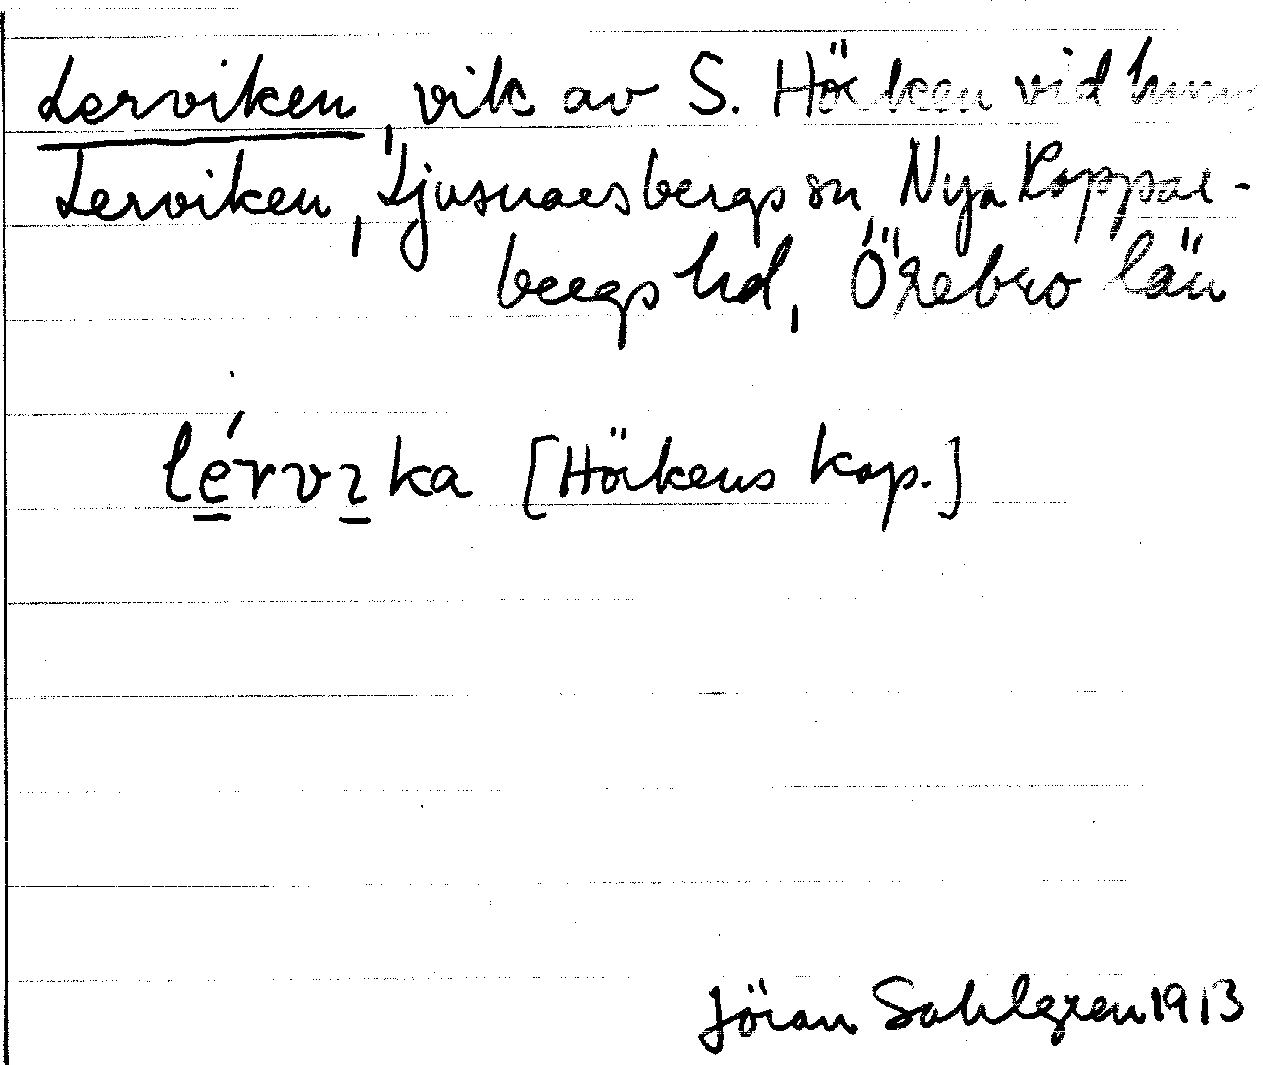 Lerviken, vik av S. Hörken vid
Lerviken, Ljusnarsbergs sn, Nya Koppar-
bergs hd, Örebro län
lérvıka [Hörkens kap.]
Jöran Sahlgren 1913